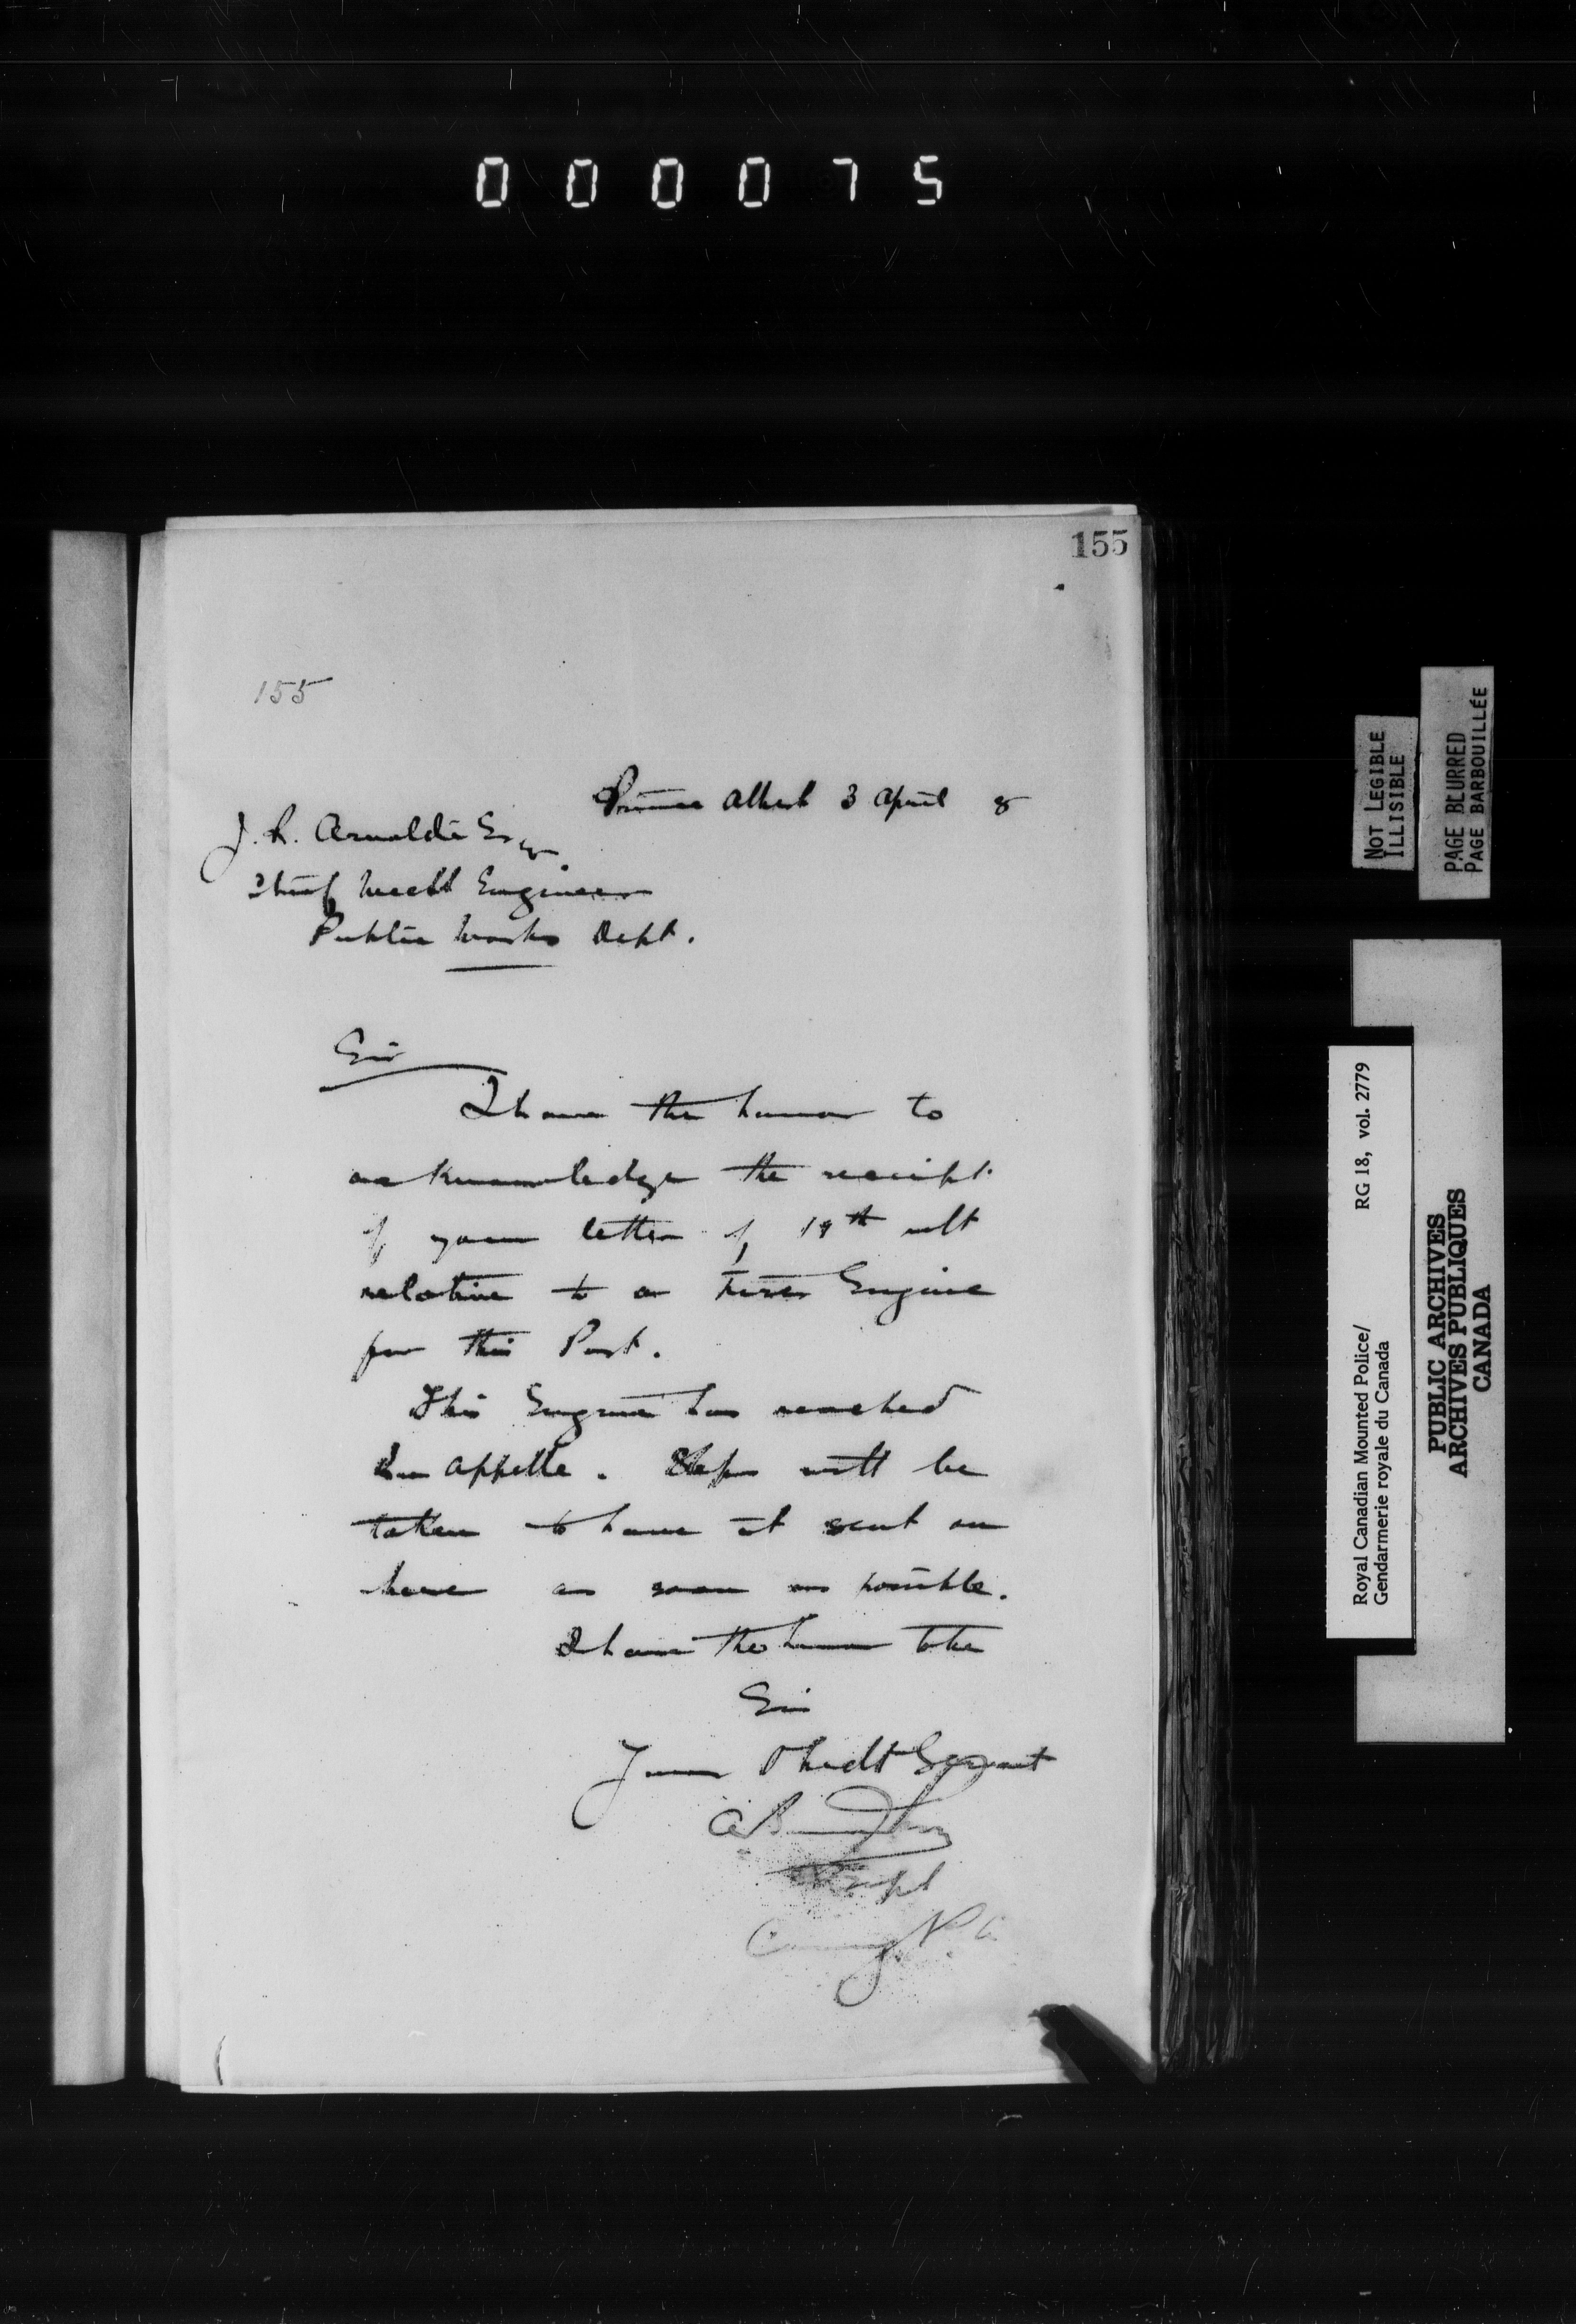 000075
155
155
Prince Albert 3 April 8
J. R. Arnoldi Esqr.
Chief Mechl Engineer
Public Works Dept.
Sir
I have the honor to
acknowledge the receipt
of your letter of 19th ult
relative to a Fire Engine
for this Post.
This Engine has reached
Qu'Appelle. Steps will be
taken to have it sent on
here as soon as possible.
I have the honor to be
Sir
Your Obedt Servant
A. B. Perry
Supt
Comg
NOT LEGIBLE
ILLISIBLE
PAGE BLURRED
PAGE BARBOUILLÉE
Royal Canadian Mounted Police/ RG 18, vol. 2779
Gendarmerie royale du Canada
PUBLIC ARCHIVES
ARCHIVES PUBLIQUES
CANADA